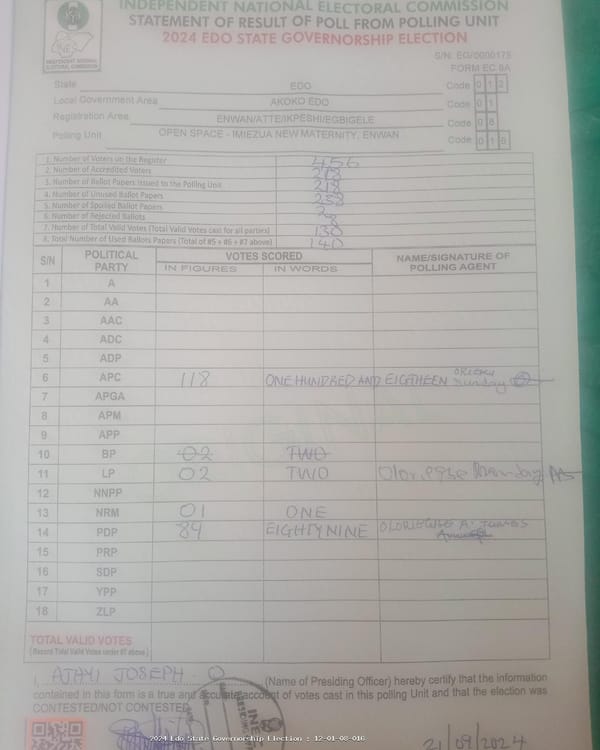 INDEPENDENT NATIONAL ELECTORAL COMMISSION
STATEMENT OF RESULT OF POLL FROM POLLING UNIT
2024 EDO STATE GOVERNORSHIP ELECTION
INDEPENDENT NATIONAL ELECTORAL COMMISSION
S/N: EG/0000175
FORM EC 8A
State EDO Code 0 1 2
Local Government Area AKOKO EDO Code 0 1
Registration Area ENWAN/ATTE/IKPESHI/EGBIGELE Code 0 8
Polling Unit OPEN SPACE - IMIEZUA NEW MATERNITY, ENWAN Code 0 1 6
1. Number of Voters on the Register 456
2. Number of Accredited Voters 218
3. Number of Ballot Papers Issued to the Polling Unit
4. Number of Unused Ballot Papers
5. Number of Spoiled Ballot Papers 2
6. Number of Rejected Ballots 8
7. Number of Total Valid Votes (Total Valid Votes cast for all parties) 130
8. Total Number of Used Ballots Papers (Total of #5 + #6 + #7 above) 140
S/N POLITICAL PARTY VOTES SCORED NAME/SIGNATURE OF POLLING AGENT
IN FIGURES IN WORDS
1 A
2 AA
3 AAC
4 ADC
5 ADP
6 APC 118 ONE HUNDRED AND EIGTHEEN Sunday
7 APGA
8 APM
9 APP
10 BP 02 TWO
11 LP 02 TWO
12 NNPP
13 NRM 01 ONE
14 PDP 89 EIGHTYNINE A. JAMES
15 PRP
16 SDP
17 YPP
18 ZLP
TOTAL VALID VOTES
(Record Total Valid Votes under #7 above)
I, AJAYI JOSEPH O (Name of Presiding Officer) hereby certify that the information
contained in this form is a true and accurate account of votes cast in this polling Unit and that the election was
CONTESTED/NOT CONTESTED
INEC
21/09/2024
2024 Edo State Governorship Election : 12-01-08-016